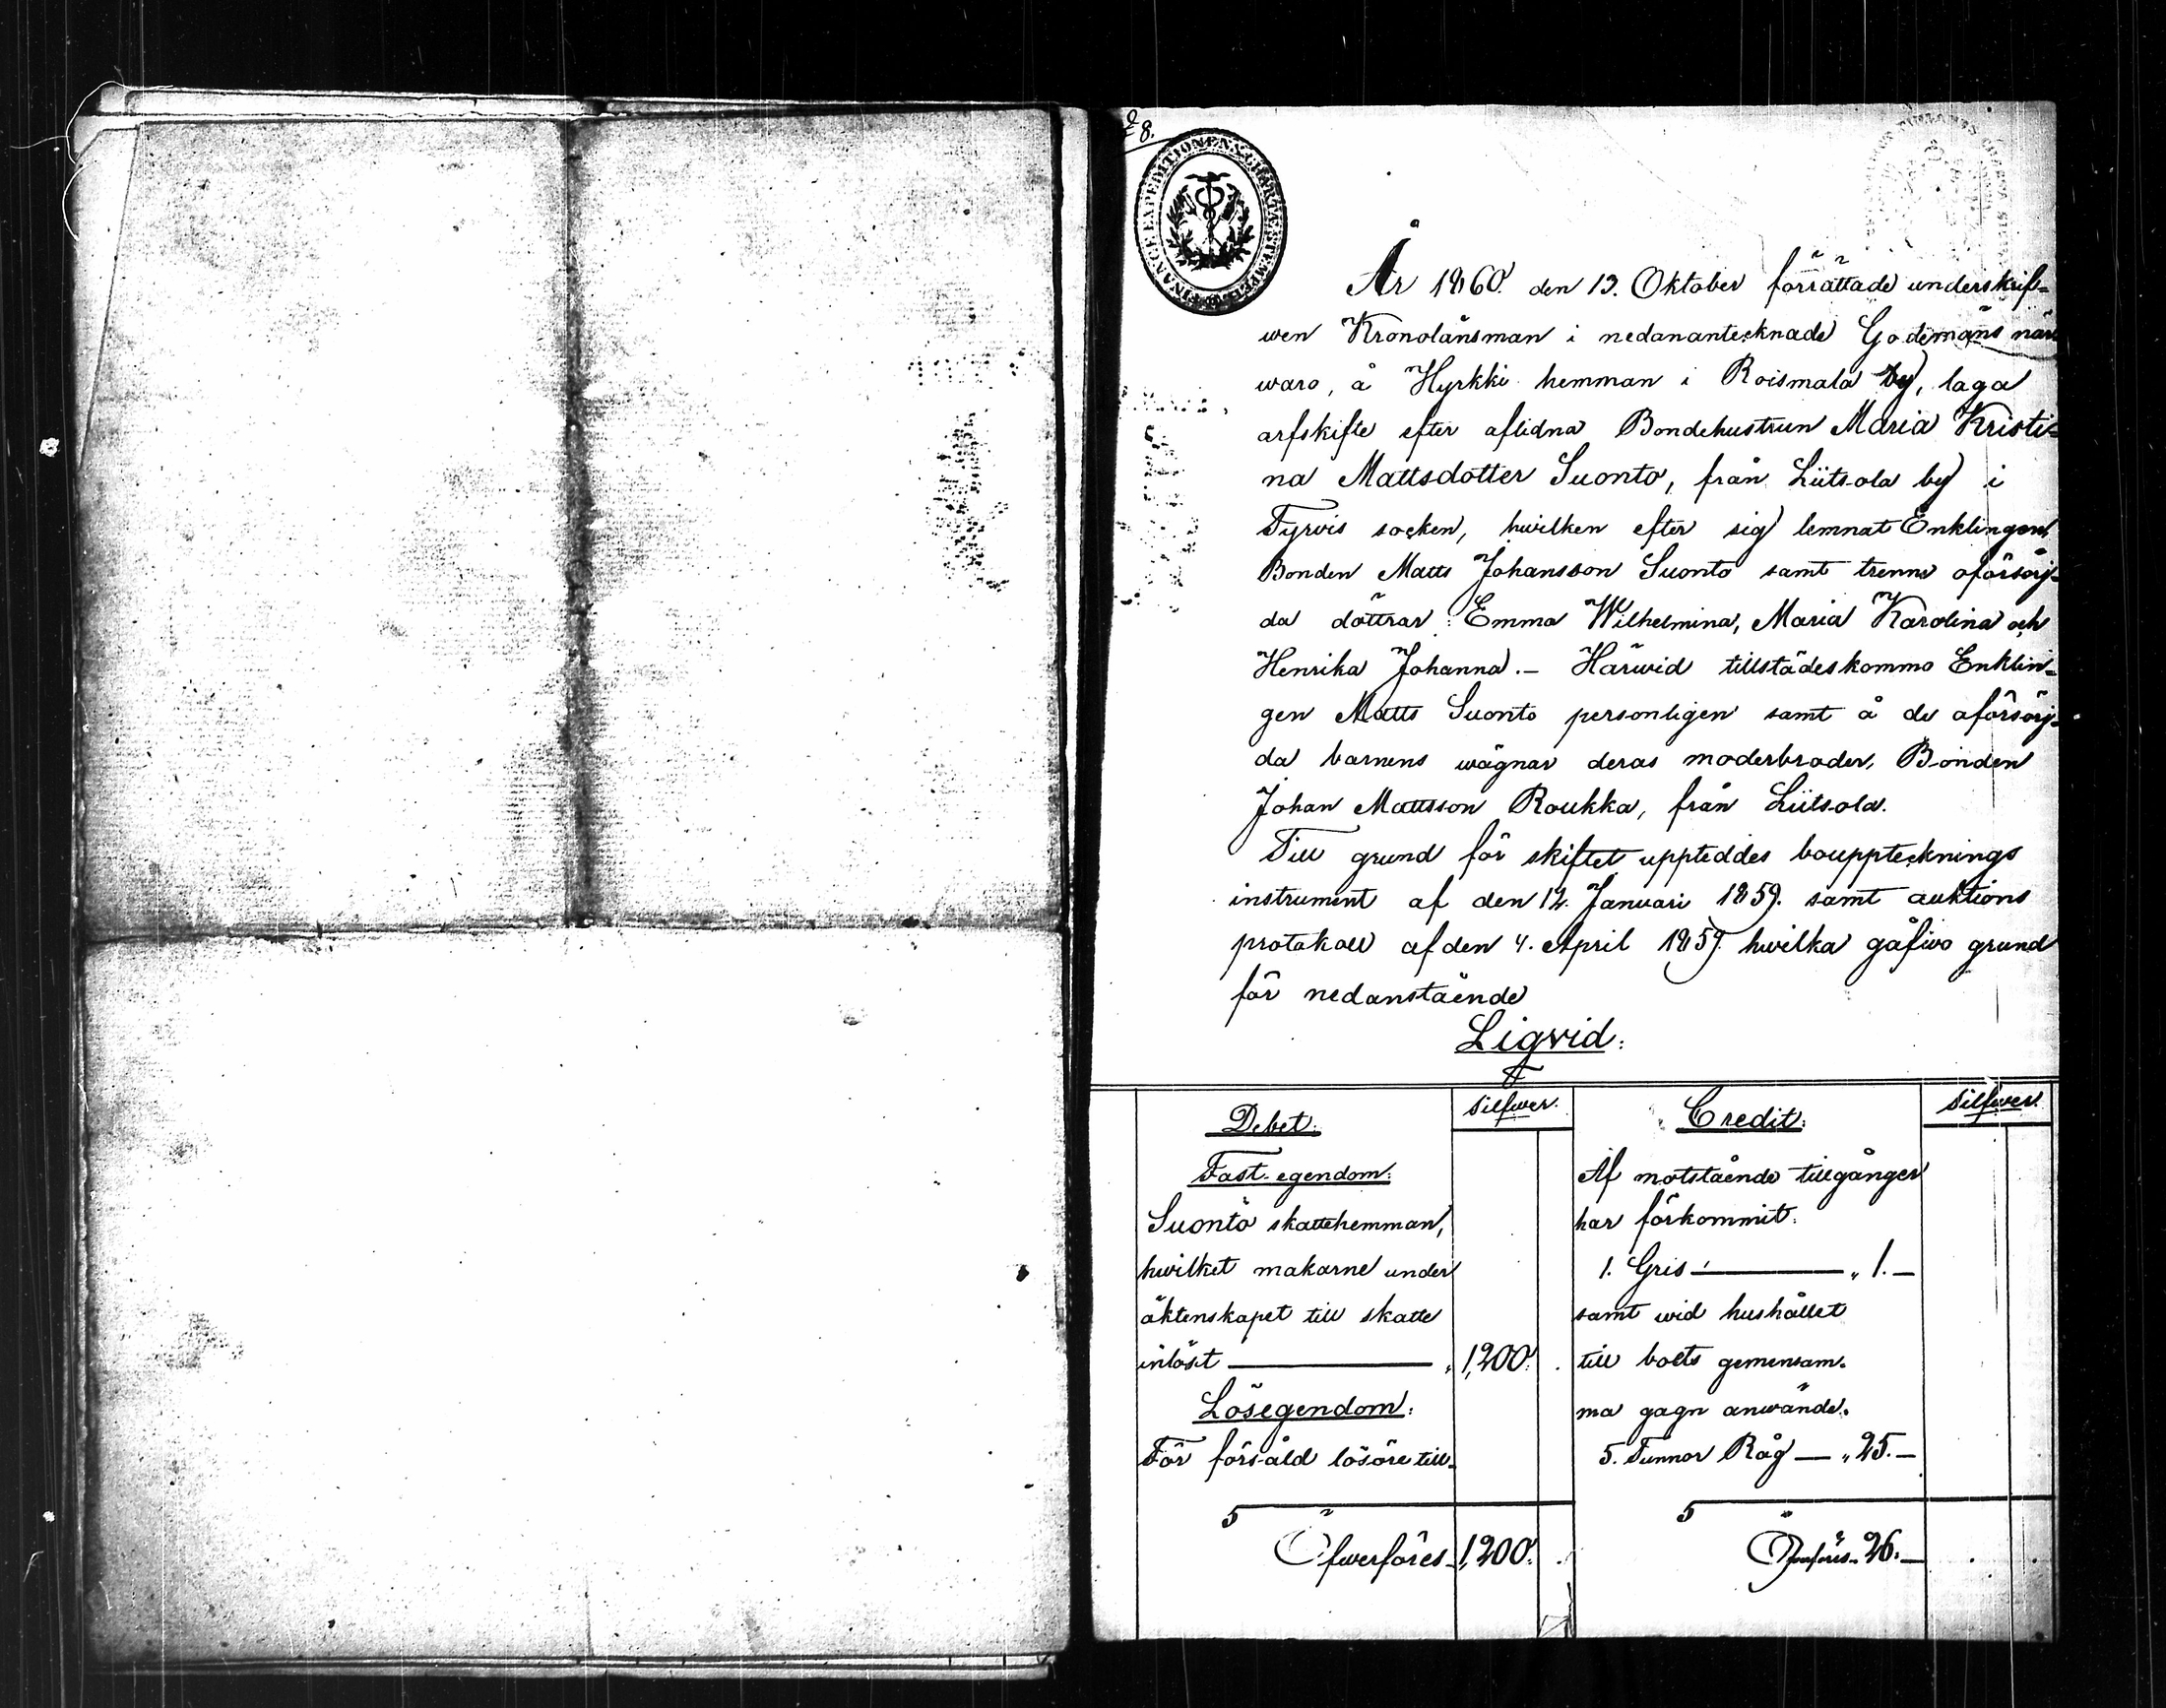 8.
FINANCE EXPEDITIONEN CHARTÆ STEMPEL
År 1860. den 13. Oktober förrättade underskrif-
wen Kronolänsman i nedanantecknade Godemäns när
waro, å Hyrkki hemman i Roismala by, laga
arfskifte efter aflidna Bondehustrun Maria Kristi-
na Mattsdotter Suonto, från Liitsola by i
Tyrvis socken, hwilken efter sig lemnat Enklingen
Bonden Matts Johansson Suonto samt trenne oförsörj-
da döttrar: Emma Wilhelmina, Maria Karolina och
Henrika Johanna. — Härwid tillstädeskommo Enklin-
gen Matts Suonto personligen samt å de oförsörj-
da barnens wägnar deras moderbroder, Bonden
Johan Mattsson Roukka, från Liitsola.
Till grund för skiftet uppteddes boupptecknings
instrument af den 12. Januari 1859. samt auktions
protokoll af den 4. April 1859. hwilka gåfwo grund
för nedanstående
Liqvid:
Debet: Silfwer. Credit: Silfwer.
Fast egendom: Af motstående tillgånger
Suonto skattehemman, har förkommit:
hwilket makarne under 1. Gris — „ 1. —
äktenskapet till skatte samt wid hushållet
inlöst — „ 1,200. till boets gemensam-
Lösegendom: ma gagn anwände.
För försåld lösöre till- 5. Tunnor Råg — „ 25. —
Öfwerföres 1,200. 26. —